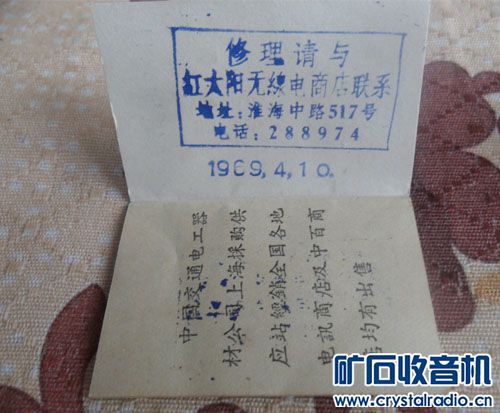 修理请与
红太阳无线电商店联系
地址:淮海中路517号
电话:288974
1969,4,10.
中国交通电工器
材公司上海採购供
应站經銷全国各地
电訊商店及中百商
店均有出售
矿石收音机
www.crystalradio.cn